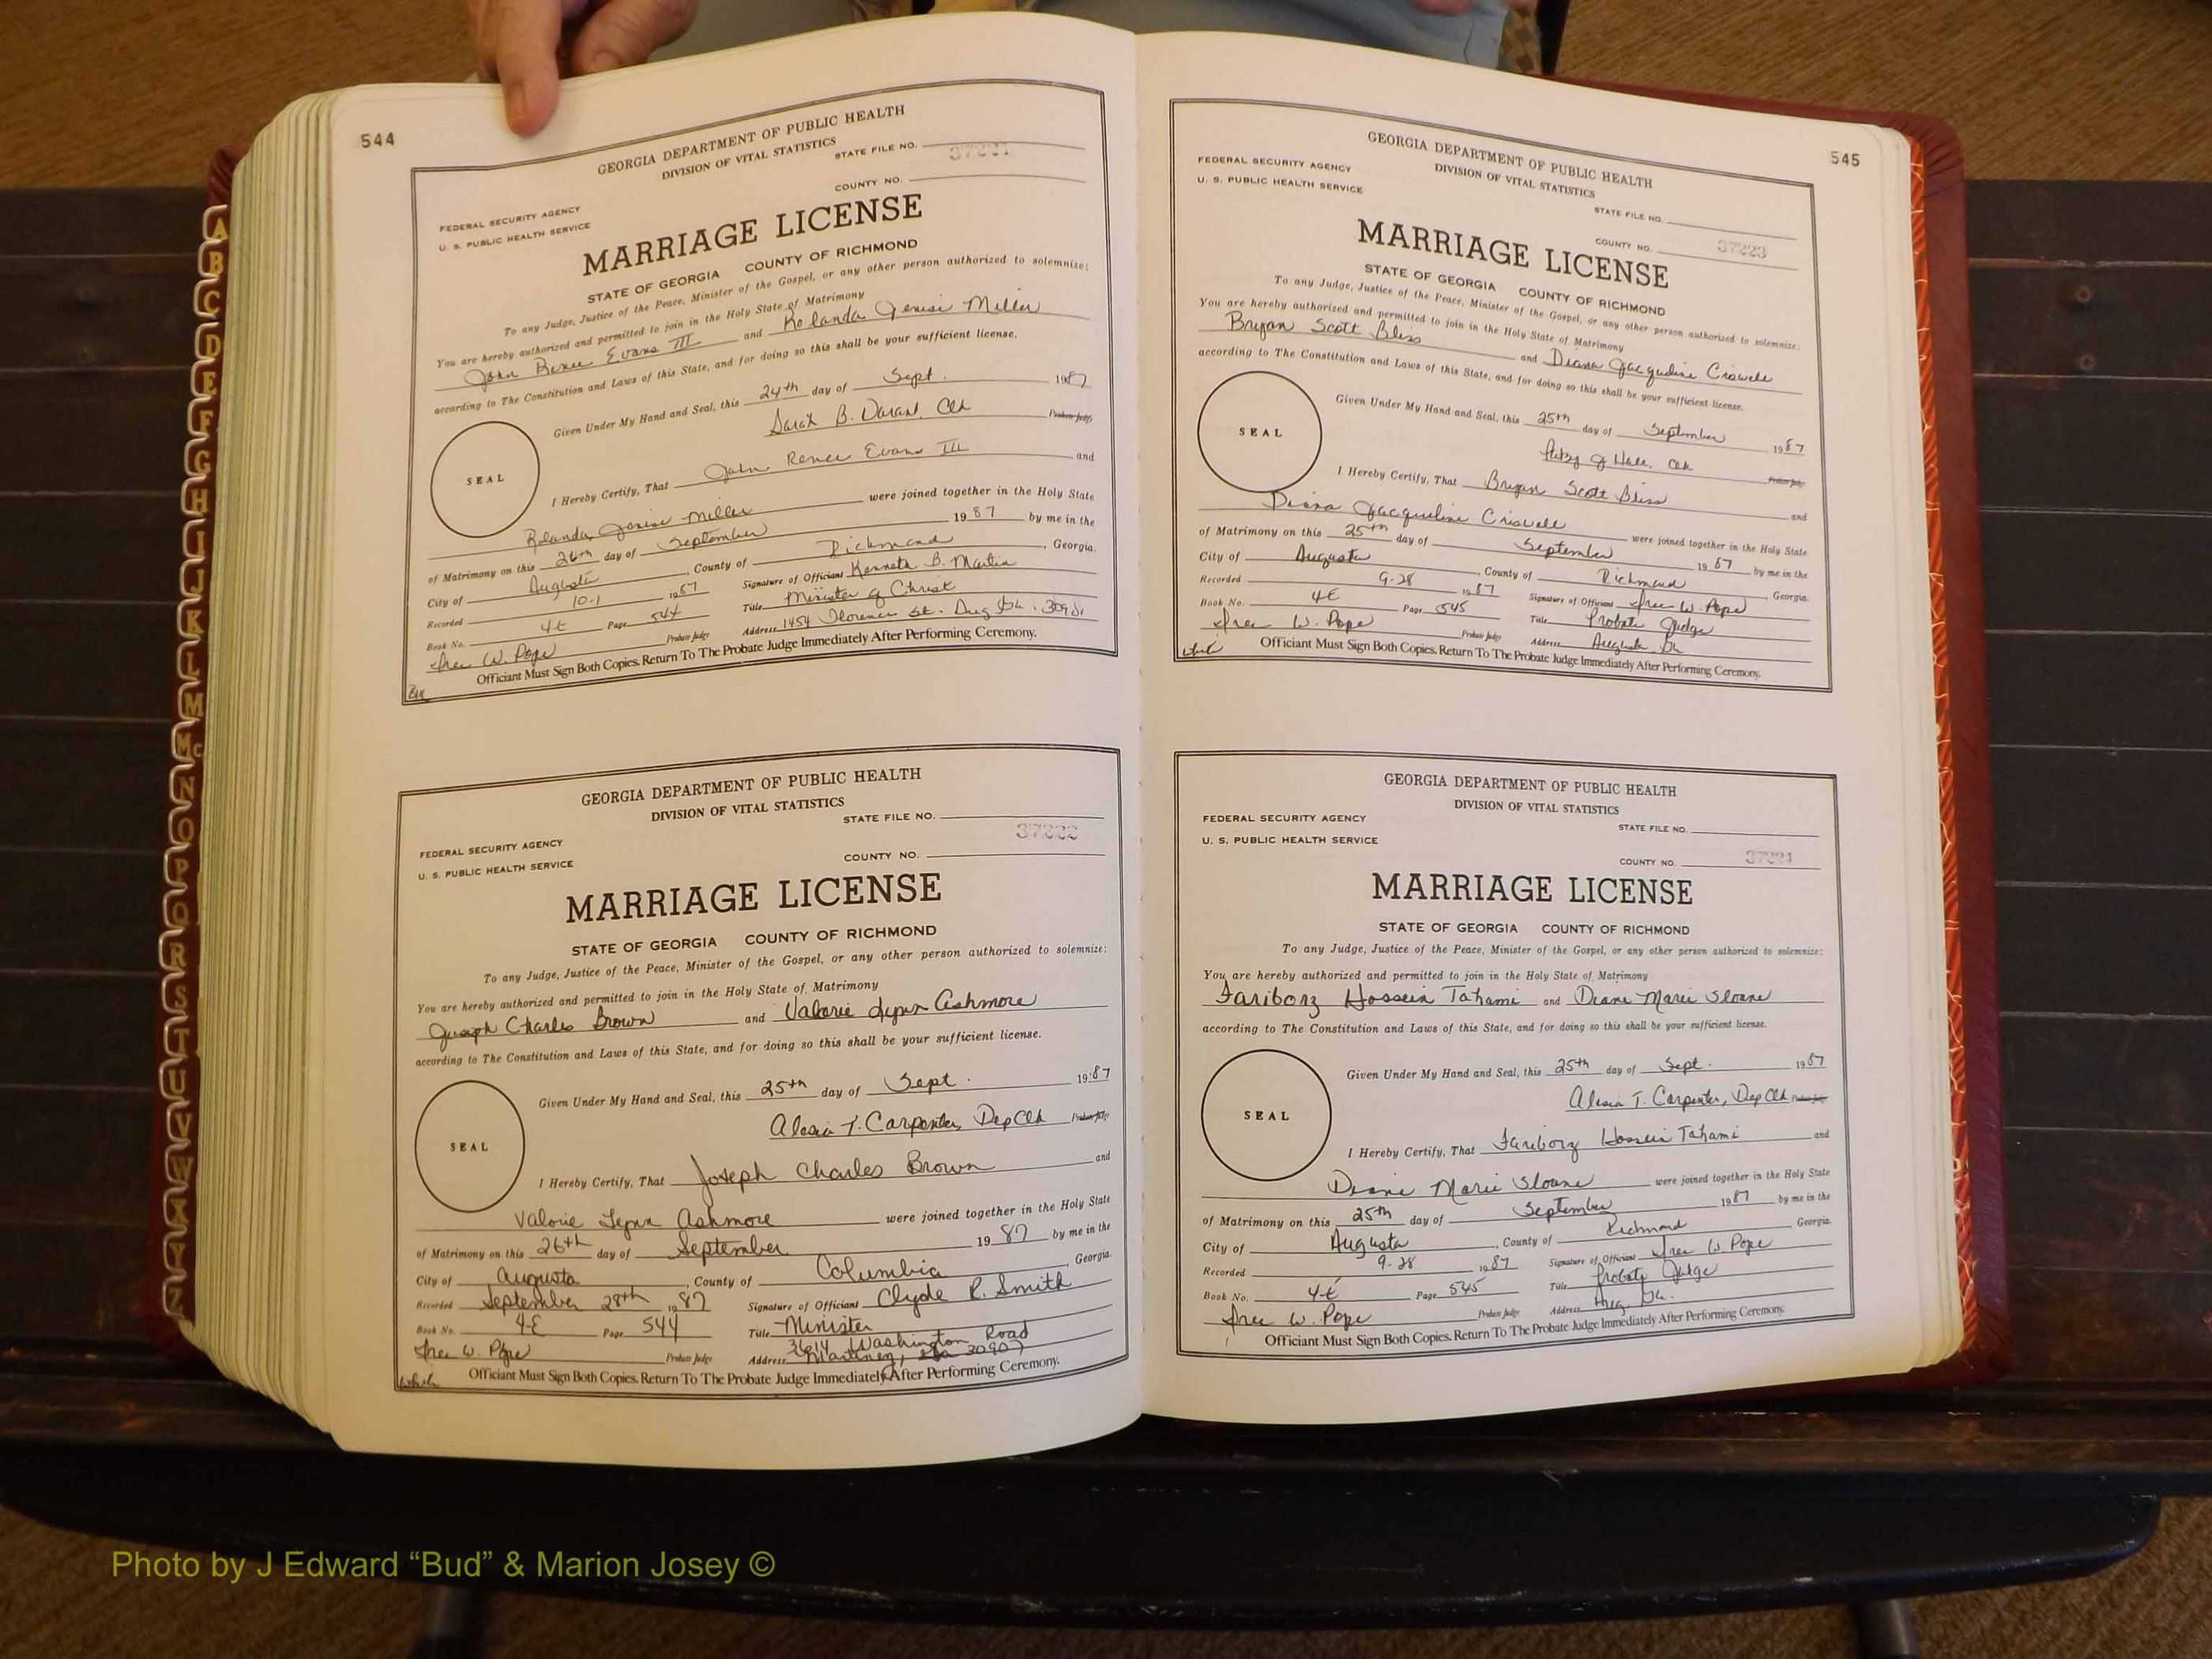 544
GEORGIA DEPARTMENT OF PUBLIC HEALTH
DIVISION OF VITAL STATISTICS
STATE FILE NO.
COUNTY NO.
FEDERAL SECURITY AGENCY
U. S. PUBLIC HEALTH SERVICE
MARRIAGE LICENSE
STATE OF GEORGIA COUNTY OF RICHMOND
To any Judge, Justice of the Peace, Minister of the Gospel, or any other person authorized to solemnize:
You are hereby authorized and permitted to join in the Holy State of Matrimony
John Renee Evans III and Rolanda Miller
according to The Constitution and Laws of this State, and for doing so this shall be your sufficient license.
Given Under My Hand and Seal, this 24th day of Sept. 1987
Sarah B. Clk Probate Judge
SEAL
I Hereby Certify, That John Renee Evans III and
Rolanda Miller were joined together in the Holy State
of Matrimony on this 26th day of September 1987 by me in the
City of Augusta, County of Richmond, Georgia.
Recorded 10-1 1987 Signature of Officiant Kenneth B. Martin
Book No. 4-E Page 544 Title Minister of Christ
W. Pope Probate Judge Address 1454 Florence St. Aug Ga.
Officiant Must Sign Both Copies. Return To The Probate Judge Immediately After Performing Ceremony.
Blk
GEORGIA DEPARTMENT OF PUBLIC HEALTH
DIVISION OF VITAL STATISTICS
STATE FILE NO.
37222
COUNTY NO.
FEDERAL SECURITY AGENCY
U. S. PUBLIC HEALTH SERVICE
MARRIAGE LICENSE
STATE OF GEORGIA COUNTY OF RICHMOND
To any Judge, Justice of the Peace, Minister of the Gospel, or any other person authorized to solemnize:
You are hereby authorized and permitted to join in the Holy State of Matrimony
Joseph Charles Brown and Valorie Lynn Ashmore
according to The Constitution and Laws of this State, and for doing so this shall be your sufficient license.
Given Under My Hand and Seal, this 25th day of Sept. 1987
Alesia T. Carpenter, Dep Clk Probate Judge
SEAL
I Hereby Certify, That Joseph Charles Brown and
Valorie Lynn Ashmore were joined together in the Holy State
of Matrimony on this 26th day of September 1987 by me in the
City of Augusta, County of Columbia, Georgia.
Recorded September 28th 1987 Signature of Officiant Clyde R. Smith
Book No. 4-E Page 544 Title Minister
W. Pope Probate Judge Address 3614 Washington Road
Martinez, Ga 30907
Officiant Must Sign Both Copies. Return To The Probate Judge Immediately After Performing Ceremony.
White
545
GEORGIA DEPARTMENT OF PUBLIC HEALTH
DIVISION OF VITAL STATISTICS
FEDERAL SECURITY AGENCY
U. S. PUBLIC HEALTH SERVICE
STATE FILE NO.
COUNTY NO. 37223
MARRIAGE LICENSE
STATE OF GEORGIA COUNTY OF RICHMOND
To any Judge, Justice of the Peace, Minister of the Gospel, or any other person authorized to solemnize:
You are hereby authorized and permitted to join in the Holy State of Matrimony
Bryan Scott Bliss and Diana Jacqueline Criswell
according to The Constitution and Laws of this State, and for doing so this shall be your sufficient license.
Given Under My Hand and Seal, this 25th day of September 1987
Hall, Clk Probate Judge
SEAL
I Hereby Certify, That Bryan Scott Bliss and
Diana Jacqueline Criswell were joined together in the Holy State
of Matrimony on this 25th day of September 1987 by me in the
City of Augusta, County of Richmond Georgia.
Recorded 9-28 1987 Signature of Officiant W. Pope
Book No. 4E Page 545 Title Probate Judge
W. Pope Probate Judge Address Augusta Ga
Officiant Must Sign Both Copies. Return To The Probate Judge Immediately After Performing Ceremony.
GEORGIA DEPARTMENT OF PUBLIC HEALTH
DIVISION OF VITAL STATISTICS
FEDERAL SECURITY AGENCY
U. S. PUBLIC HEALTH SERVICE
STATE FILE NO.
COUNTY NO. 37224
MARRIAGE LICENSE
STATE OF GEORGIA COUNTY OF RICHMOND
To any Judge, Justice of the Peace, Minister of the Gospel, or any other person authorized to solemnize:
You are hereby authorized and permitted to join in the Holy State of Matrimony
Fariborz Hossein Tahami and Diane Marie Sloane
according to The Constitution and Laws of this State, and for doing so this shall be your sufficient license.
Given Under My Hand and Seal, this 25th day of Sept. 1987
Alesia T. Carpenter, Dep Clk Probate Judge
SEAL
I Hereby Certify, That Fariborz Hossein Tahami and
Diane Marie Sloane were joined together in the Holy State
of Matrimony on this 25th day of September 1987 by me in the
City of Augusta, County of Richmond Georgia.
Recorded 9-28 1987 Signature of Officiant W. Pope
Book No. 4-E Page 545 Title Probate Judge
W. Pope Probate Judge Address Aug. Ga.
Officiant Must Sign Both Copies. Return To The Probate Judge Immediately After Performing Ceremony.
A
B
C
D
E
F
G
H
I
J
K
L
M
Mc
N
O
P
Q
R
S
T
U
V
W
X
Y
Z
Photo by J Edward “Bud” & Marion Josey ©